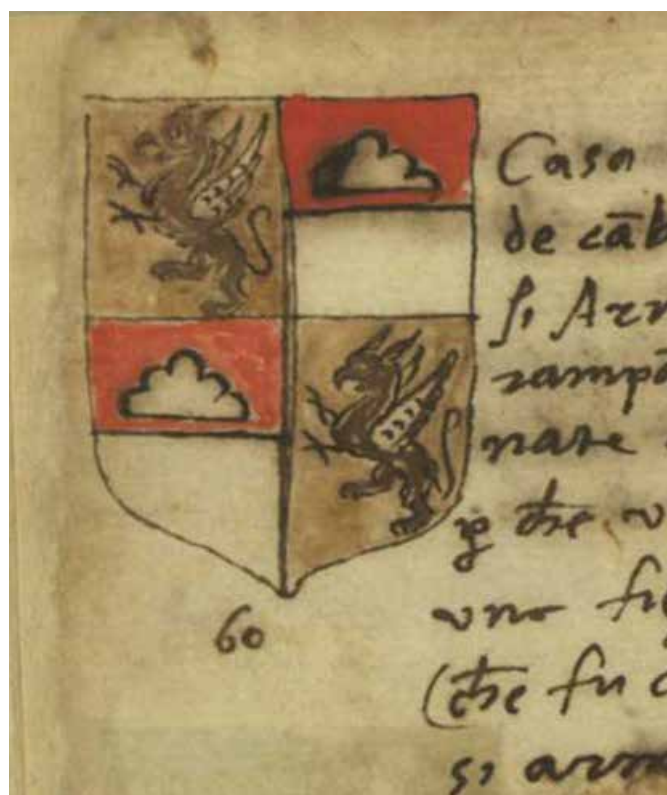 Casa
de cāb
si Arm
rampā
nare
che v
uno fig
(che fu
si arm
60